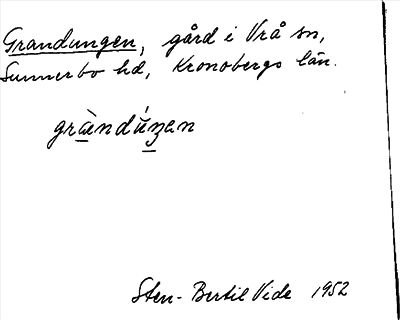 Grandungen, gård i Vrå sn,
Sunnerbo hd, Kronobergs län.
gràndúŋen
Sten-Bertil Vide 1952